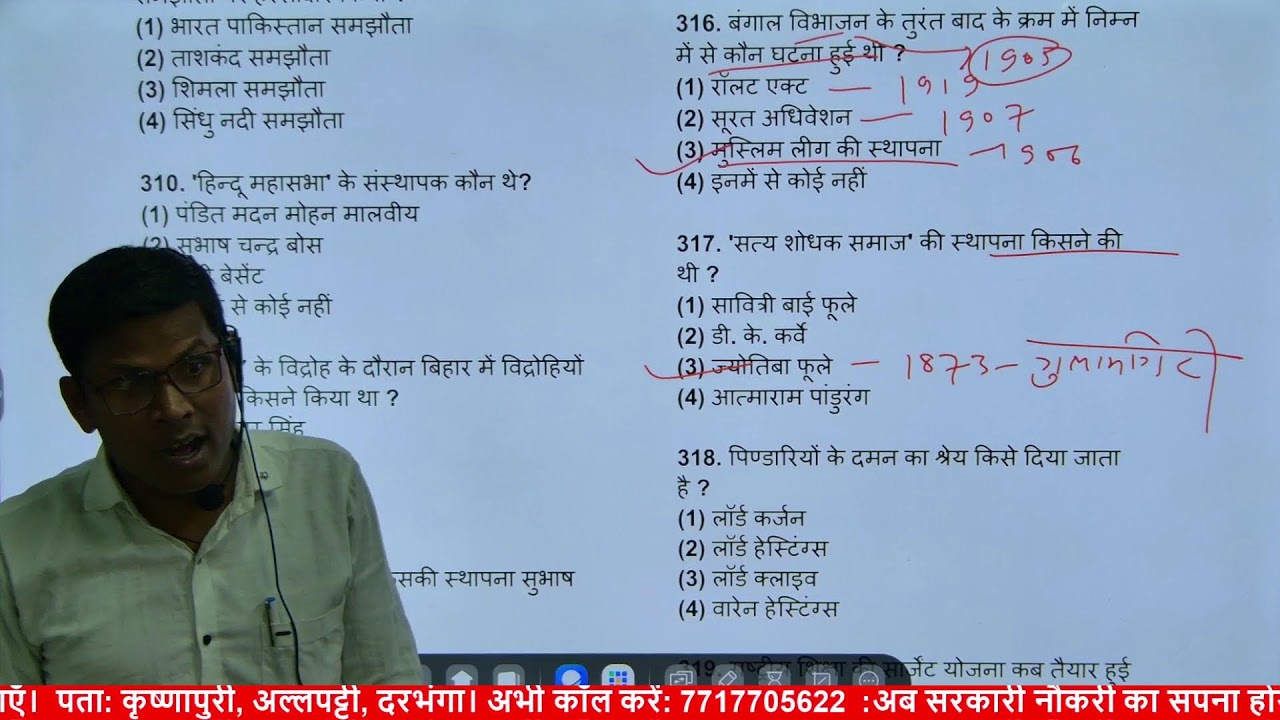 (1) भारत पाकिस्तान समझौता
(2) ताशकंद समझौता
(3) शिमला समझौता
(4) सिंधु नदी समझौता
310. 'हिन्दू महासभा' के संस्थापक कौन थे?
(1) पंडित मदन मोहन मालवीय
(2) सुभाष चन्द्र बोस
बेसेंट
से कोई नहीं
के विद्रोह के दौरान बिहार में विद्रोहियों
किसने किया था ?
सिंह
स्थापना सुभाष
316. बंगाल विभाजन के तुरंत बाद के क्रम में निम्न
में से कौन घटना हुई थी ? 1905
(1) रॉलट एक्ट — 1919
(2) सूरत अधिवेशन — 1907
(3) मुस्लिम लीग की स्थापना — 1906
(4) इनमें से कोई नहीं
317. 'सत्य शोधक समाज' की स्थापना किसने की
थी ?
(1) सावित्री बाई फूले
(2) डी. के. कर्वे
(3) ज्योतिबा फूले — 1873 — गुलामगिरी
(4) आत्माराम पांडुरंग
318. पिण्डारियों के दमन का श्रेय किसे दिया जाता
है ?
(1) लॉर्ड कर्जन
(2) लॉर्ड हेस्टिंग्स
(3) लॉर्ड क्लाइव
(4) वारेन हेस्टिंग्स
319. राष्ट्रीय शिक्षा की सार्जेट योजना कब तैयार हुई
पता: कृष्णापुरी, अल्लपट्टी, दरभंगा। अभी कॉल करें: 7717705622 :अब सरकारी नौकरी का सपना